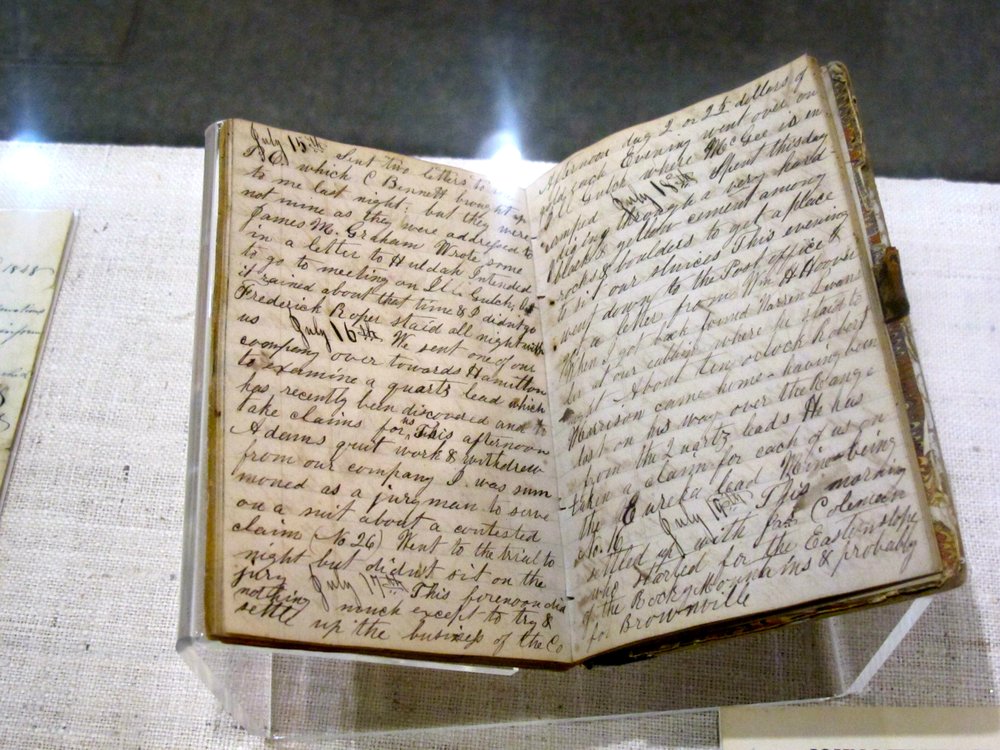 July 15th Sent two letters to
P.O. which C Bennett brought up
to me last night, but they were
not mine as they were addressed to
James M. Graham Wrote some
in a letter to Huldah Intended
to go to meeting on Ills Gulch, but
it rained about that time & I didnt go
Frederick Roper staid all night with
us July 16th We sent one of our
company over towards Hamilton
to examine a quartz lead which
has recently been discovered and to
take claims for us This afternoon
Adams quit work & withdrew
from our company I was sum-
moned as a juryman to serve
on a suit about a contested
claim (No 26) Went to the trial to
night but didn't sit on the
jury July 17th This forenoon did
nothing much except to try &
settle up the business of the Co
Afternoon dug 2 or 2½ dollars of
Evening went over on
Ills Gulch where McGee is in
camped July 18th Spent this day
digging through a very hard
black & yellow cement among
rocks & boulders to get a place
to set our sluices This evening
went down to the Post office &
got a letter from Wm H Hoover
When I got back found Warren
at our cabin where he staid to
About ten oclock Robert
Harrison came home having been
lost on his way over the Range
from the Quartz leads He has
taken a claim for each of us on
the Eureka lead Mine being
No. 16 July 19th This morning
settled up with Jas Coleman
who started for the Eastern slope
of the Rocky Mountains & probably
for Brownville